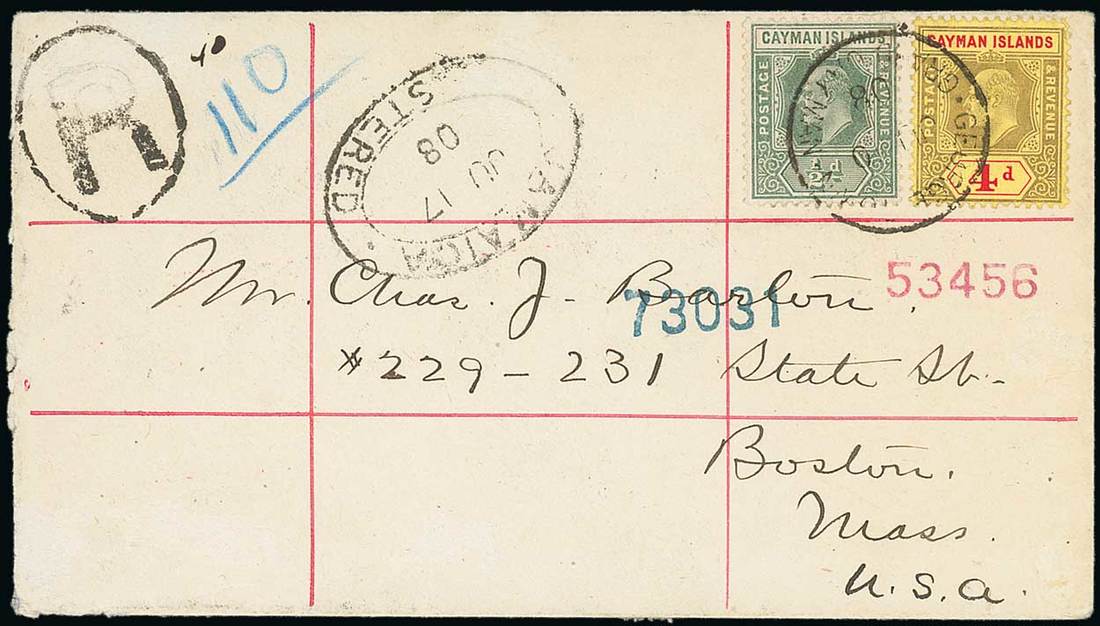 R
110
REGISTERED
JAMAICA
JU 17
08
CAYMAN ISLANDS
POSTAGE & REVENUE
½d
CAYMAN ISLANDS
POSTAGE & REVENUE
4d
GEORGETOWN
GRAND CAYMAN
08
Mr. Chas. J. Barton.
53456
73031
#229-231 State St.
Boston.
Mass.
U.S.A.